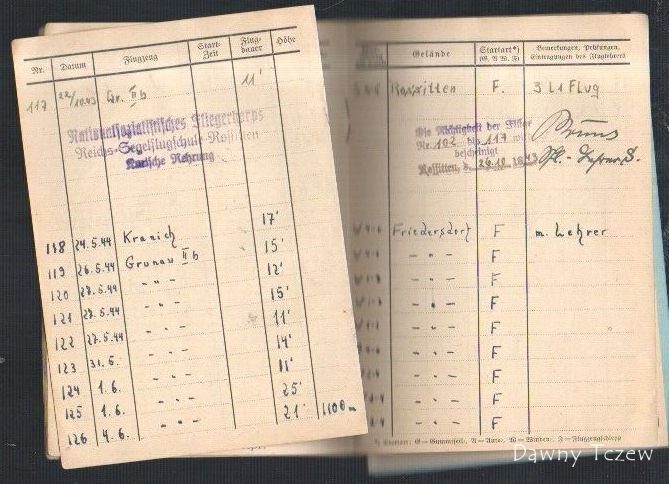 Nr. Datum Flugzeug Start-Zeit Flug-dauer Höhe
117 22/10.43 Gr. II b 11'
Nationalsozialistisches Fliegerkorps
Reichs-Segelflugschule Rossitten
Kurische Nehrung
118 24.5.44 Kranich 17'
119 26.5.44 Grunau II b 15'
120 27.5.44 - " - 12'
121 27.5.44 - " - 15'
122 27.5.44 - " - 11'
123 31.5. - " - 14'
124 1.6. - " - 11'
125 1.6. - " - 25'
126 4.6. - " - 21' 1100m
Gelände Startart*) (G. A. W. F.) Bemerkungen, Prüfungen, Eintragungen des Fluglehrers
Rossitten F. 3 L1 Flug
Die Richtigkeit der Flüge
Nr. 102 bis 117 wird
bescheinigt
Rossitten, d. 26.10.1943
Friedersdorf F m. Lehrer
- " - F
- " - F
- " - F
- " - F
- " - F
- " - F
- " - F
- " - F
*) Startart: G = Gummiseil, A = Auto, W = Winden, F = Flugzeugschlepp
Dawny Tczew